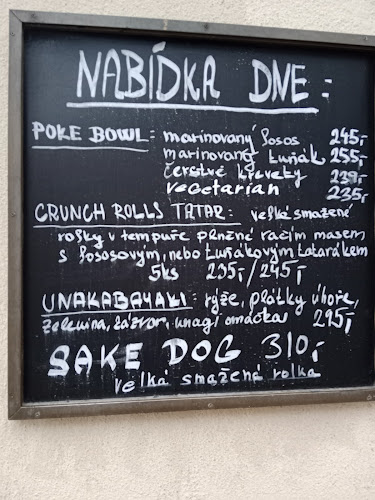 NABÍDKA DNE:
POKE BOWL: marinovaný losos 245,-
marinovaný tuňák 255,-
čerstvé krevety 239,-
vegetarian 235,-
CRUNCH ROLLS TATAR: velké smažené
rolky v tempuře plněné račím masem
s lososovým, nebo tuňákovým tatarákem
5ks 235,-/245,-
UNAKABAYAKI: rýže, plátky úhoře,
zelenina, zázvor, unagi omáčka 295,-
SAKE DOG 310,-
velká smažená rolka